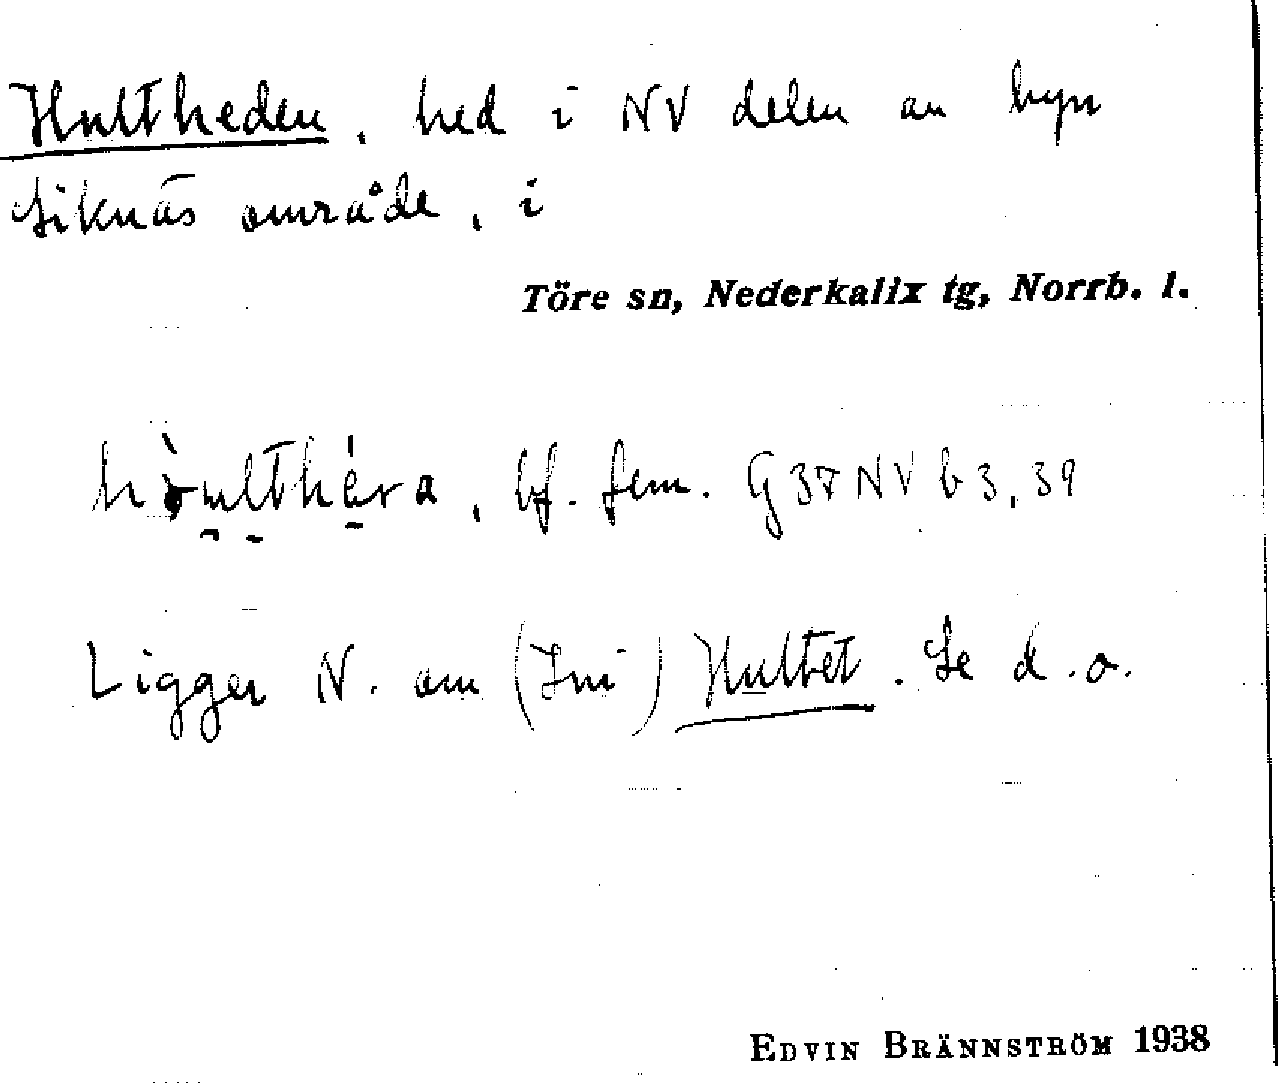 Hultheden, hed i NV delen av byn
Siknäs område, i
Töre sn, Nederkalix tg, Norrb. l.
bf. fem. G37NV b3, 39
Ligger N. om (Ini) Hultet. Se d.o.
EDVIN BRÄNNSTRÖM 1938